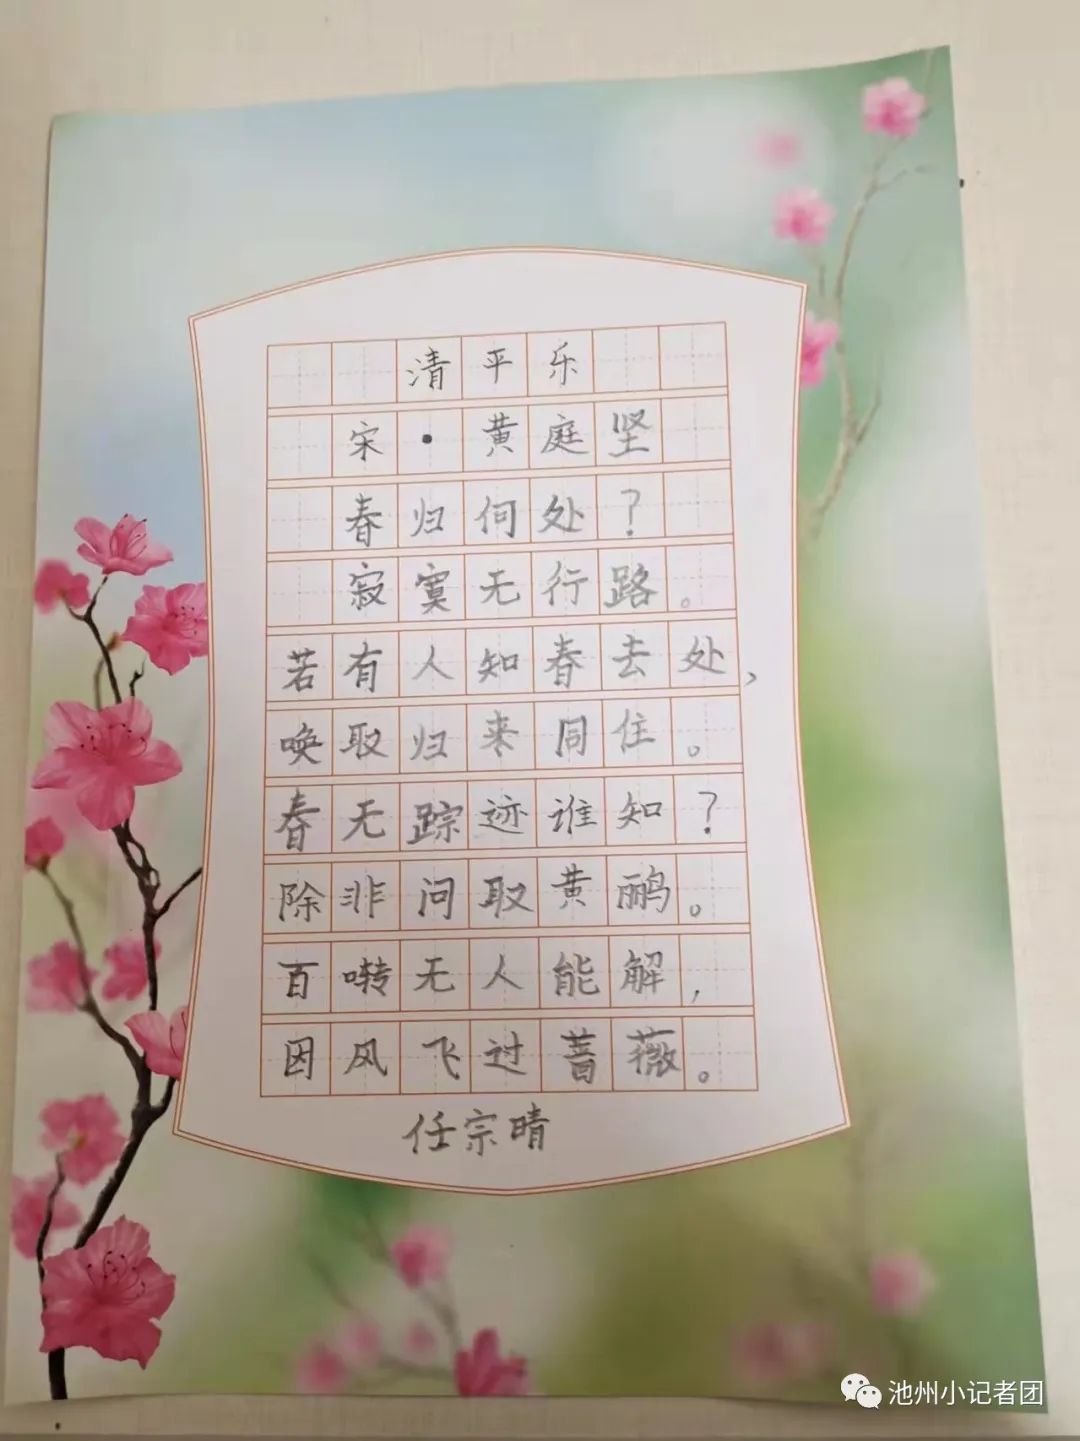 清平乐
宋·黄庭坚
春归何处？
寂寞无行路。
若有人知春去处，
唤取归来同住。
春无踪迹谁知？
除非问取黄鹂。
百啭无人能解，
因风飞过蔷薇。
任宗晴
池州小记者团